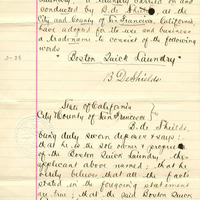 conducted by B. De Shields, at the
City and County of San Francisco, California
have adopted for its use and business
a tradename to consist of the following
words
"Boston Quick Laundry"
B De Shields
State of California
City & County of San Francisco
B. De Shields,
being duly sworn deposes & says:
that he is the sole owner & proprietor
of the Boston Quick Laundry, the
applicant above named; that he
verily believes that all the facts
stated in the foregoing statement
are true; that said Boston Quick